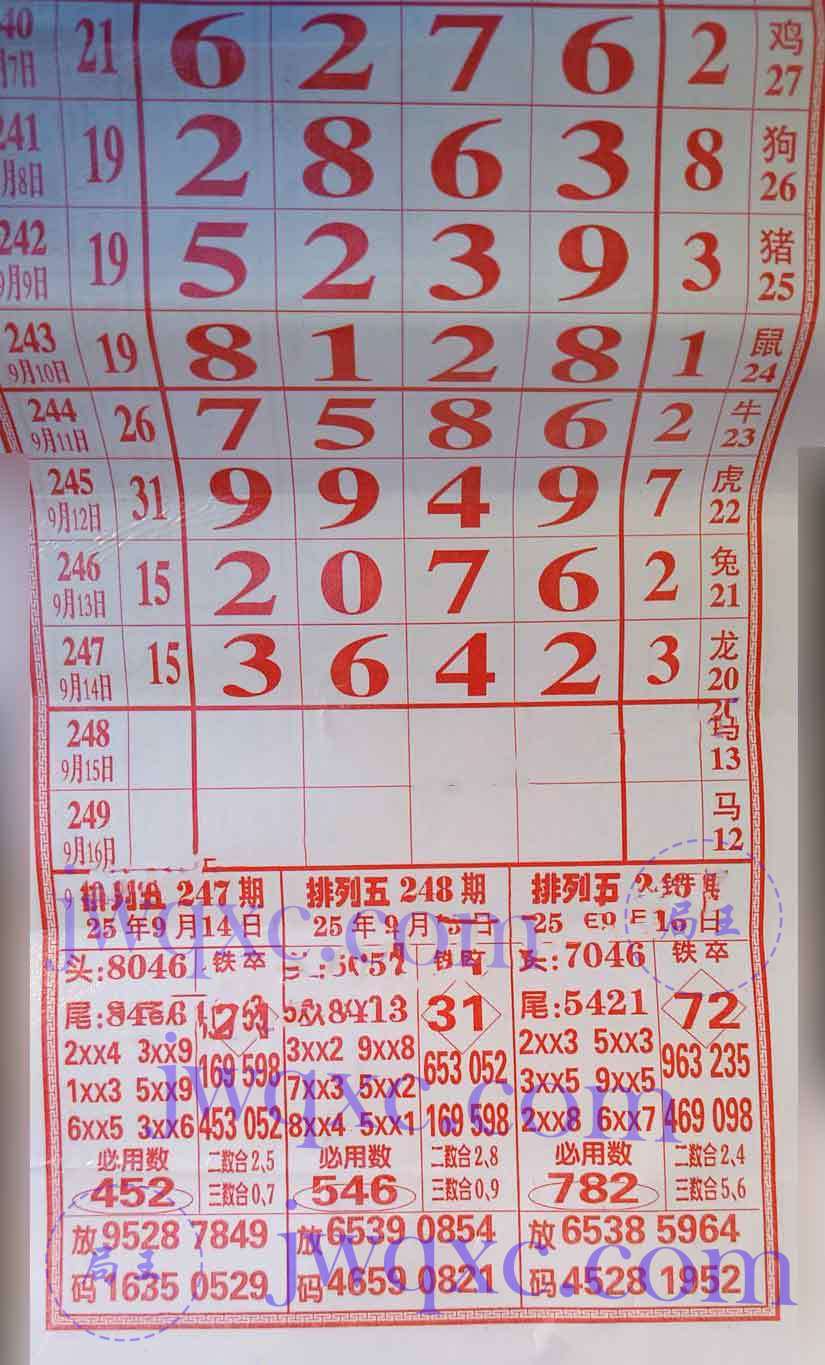 40 21 6 2 7 6 2 鸡
7日 27
241 19 2 8 6 3 8 狗
月8日 26
242 19 5 2 3 9 3 猪
9月9日 25
243 19 8 1 2 8 1 鼠
9月10日 24
244 26 7 5 8 6 2 牛
9月11日 23
245 31 9 9 4 9 7 虎
9月12日 22
246 15 2 0 7 6 2 兔
9月13日 21
247 15 3 6 4 2 3 龙
9月14日 20
248
9月15日 13
249 马
9月16日 12
排列五 247 期
25 年 9 月 14 日
头:8046 铁卒
尾:
2xx4 3xx9 169 598
1xx3 5xx9
6xx5 3xx6 453 052
必用数 二数合 2,5
452 三数合 0,7
放 9528 7849
码 1635 0529
排列五 248 期
25 年 9 月 日
31
3xx2 9xx8 653 052
7xx3 5xx2
8xx4 5xx1 169 598
必用数 二数合 2,8
546 三数合 0,9
放 6539 0854
码 4659 0821
排列五 期
25 16 日
:7046 铁卒
尾:5421 72
2xx3 5xx3 963 235
3xx5 9xx5
2xx8 6xx7 469 098
必用数 二数合 2,4
782 三数合 5,6
放 6538 5964
码 4528 1952
jwqxc.com
局王
jwqxc.com
局王
jwqxc.com